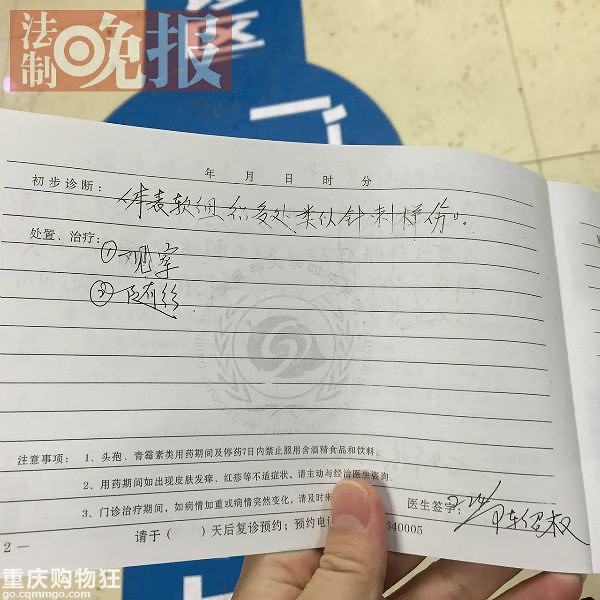 法制
晚报
年 月 日 时 分
初步诊断： 体表软组织多处类似针刺样伤。
处置、治疗：
①观察
②随诊
注意事项： 1、头孢、青霉素类用药期间及停药7日内禁止服用含酒精食品和饮料。
2、用药期间如出现皮肤发痒、红疹等不适症状，请主动与经治医生咨询。
3、门诊治疗期间，如病情加重或病情突然变化，请及时来
医生签字：
请于( )天后复诊预约；预约电
340005
2 -
重庆购物狂
go.cqmmgo.com